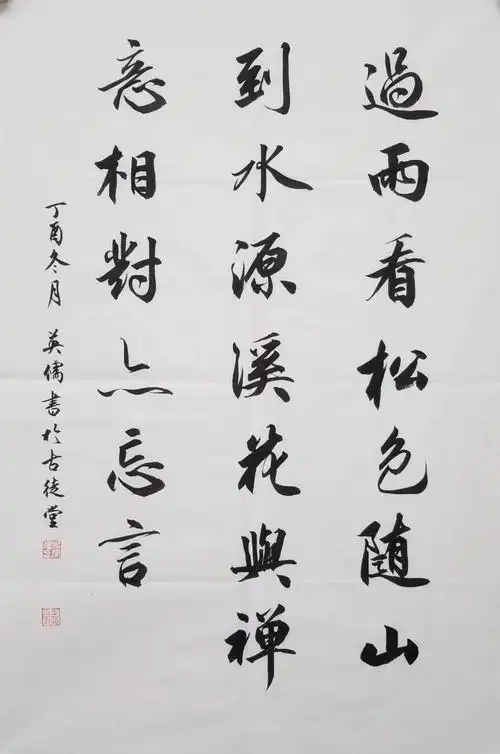 過雨看松色随山
到水源溪花與禅
意相對亦忘言
丁酉冬月 英儒書於古徒堂